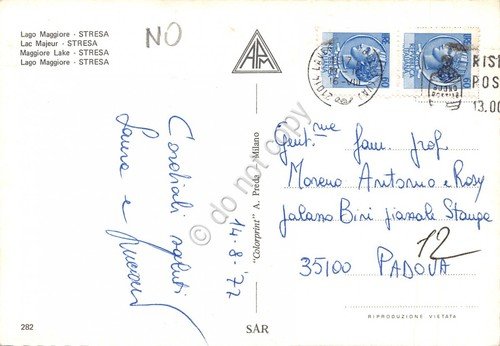 Lago Maggiore - STRESA
Lac Majeur - STRESA
Maggiore Lake - STRESA
Lago Maggiore - STRESA
NO
AFM
RIS
POS
13.00
Cordiali saluti
Laura e
14-8-72
"Colorprint" A. Preda - Milano
Gent.me Fam. prof.
Moreno Antonio e Rosy
Palazzo Bini piazzale Stanga
12
35100 PADOVA
RIPRODUZIONE VIETATA
282
SAR
© do not copy